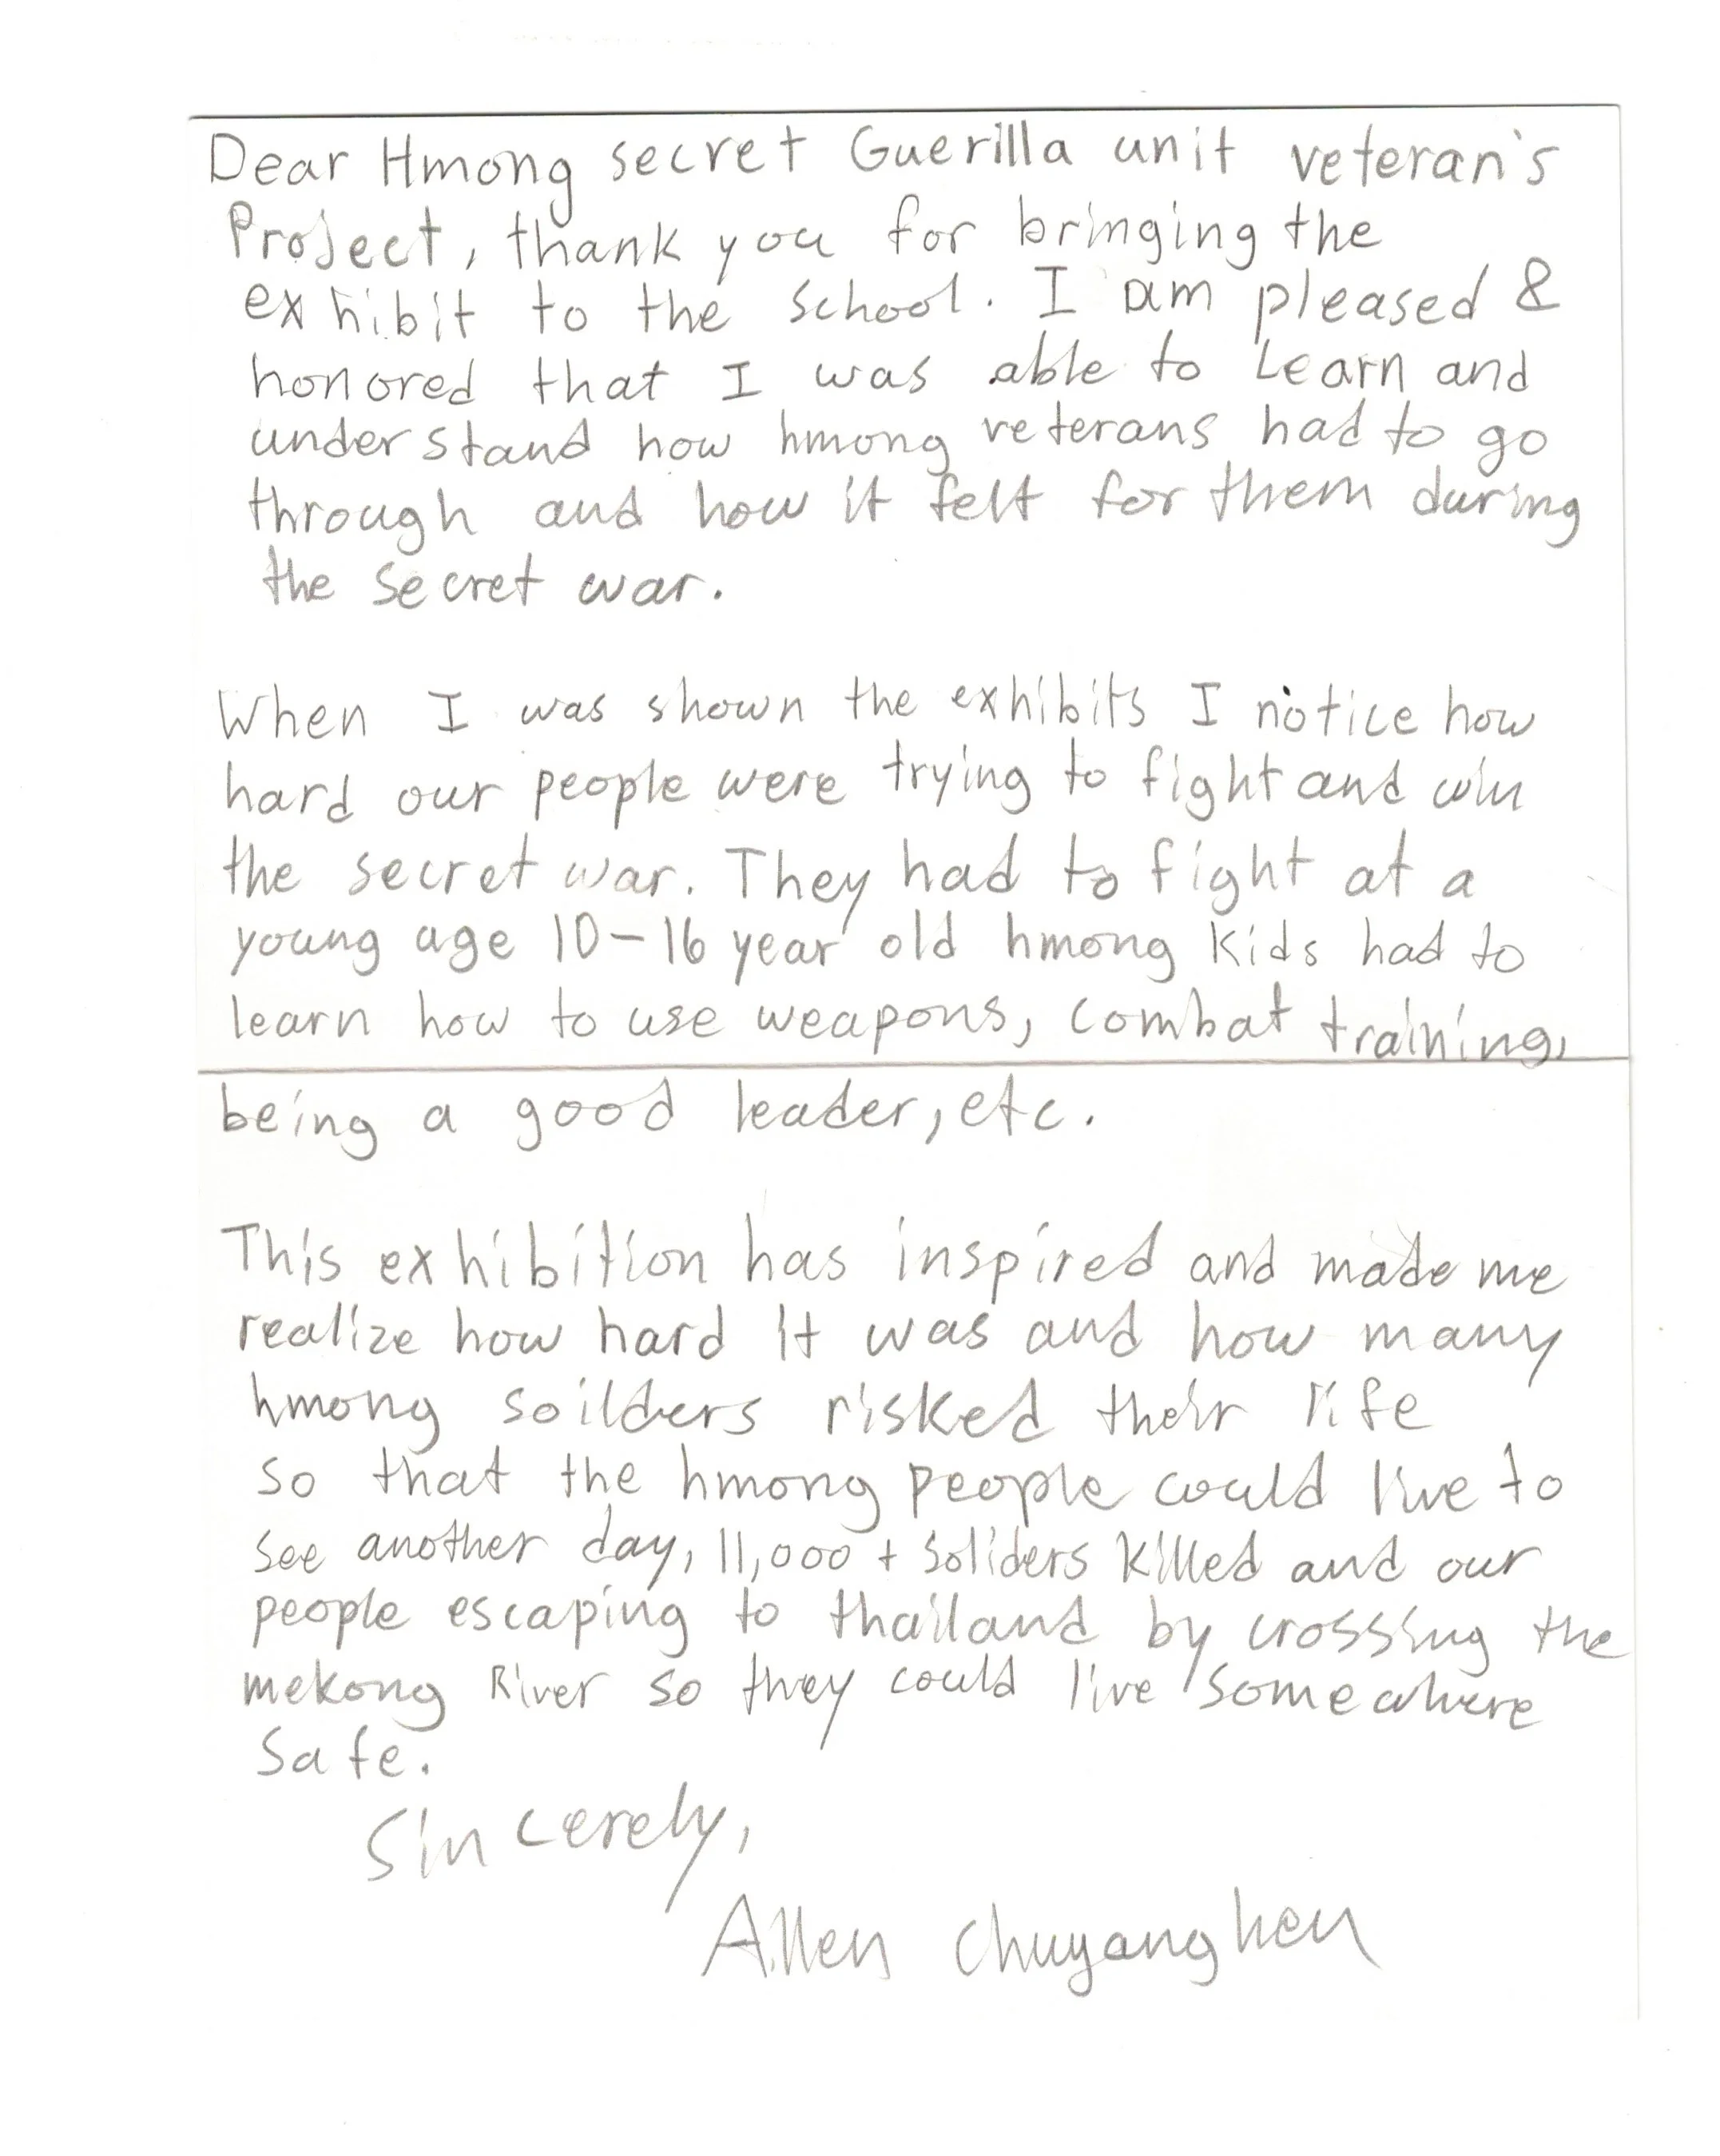 Dear Hmong secret Guerilla unit veteran's
Project, thank you for bringing the
exhibit to the school. I am pleased &
honored that I was able to Learn and
understand how hmong veterans had to go
through and how it felt for them during
the secret war.
When I was shown the exhibits I notice how
hard our people were trying to fight and win
the secret war. They had to fight at a
young age 10-16 year old hmong kids had to
learn how to use weapons, combat training,
being a good leader, etc.
This exhibition has inspired and made me
realize how hard It was and how many
hmong soilders risked their life
so that the hmong people could live to
see another day, 11,000 + Soliders killed and our
people escaping to thailand by crossing the
mekong River so they could live somewhere
Safe.
Sincerely,
Allen Chuyanghen